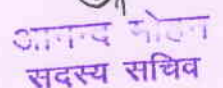 आनन्द मोहन
सदस्य सचिव